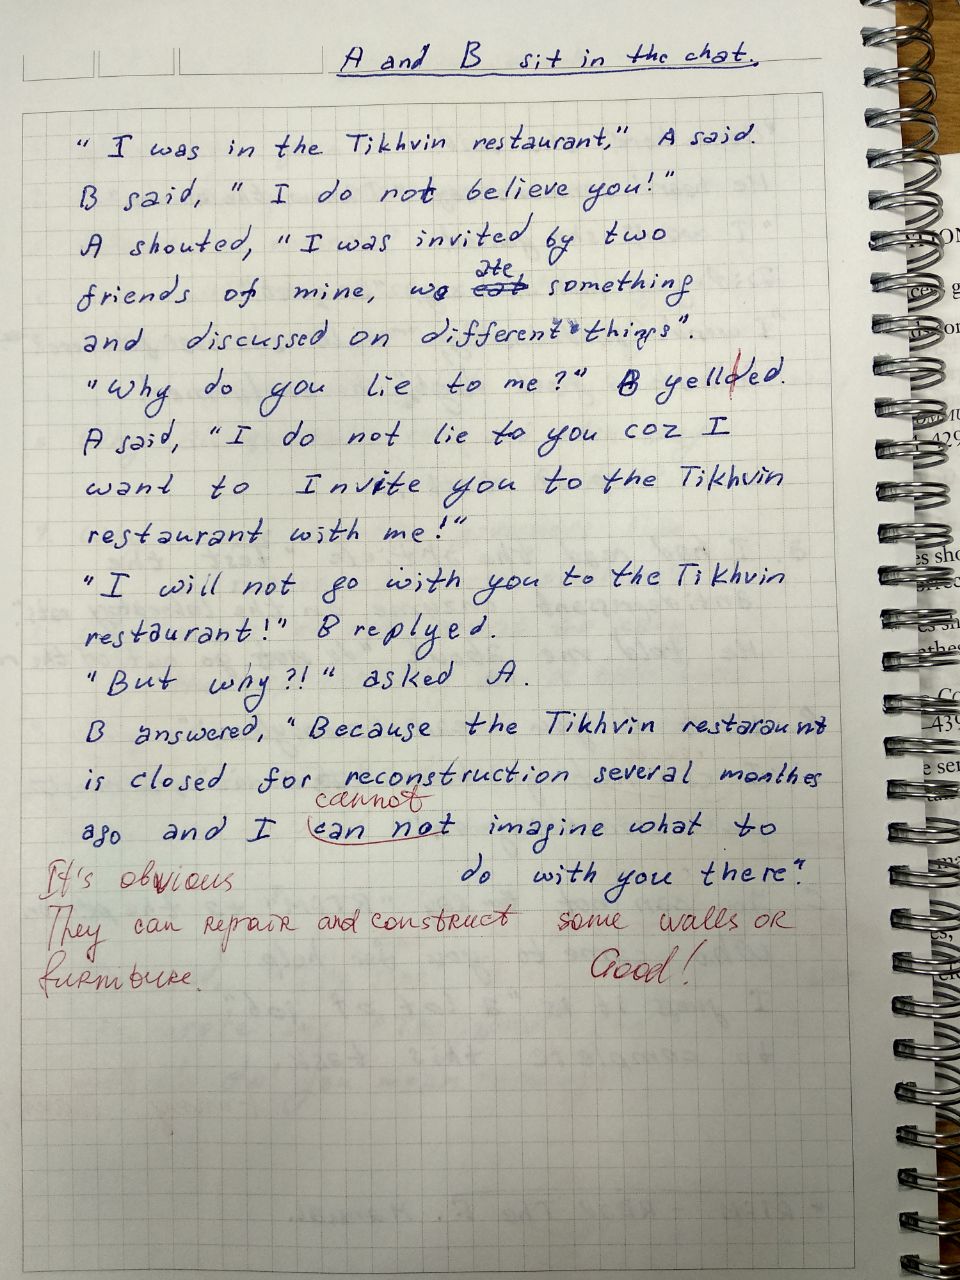 A and B sit in the chat.
"I was in the Tikhvin restaurant," A said.
B said, "I do not believe you!"
A shouted, "I was invited by two
ate
friends of mine, we eat something
and discussed on different things".
"Why do you lie to me?" B yellded.
A said, "I do not lie to you coz I
want to Invite you to the Tikhvin
restaurant with me!"
"I will not go with you to the Tikhvin
restaurant!" B replyed.
"But why?!" asked A.
B answered, "Because the Tikhvin restaraunt
is closed for reconstruction several monthes
cannot
ago and I can not imagine what to
do with you there".
It's obvious
They can repair and construct some walls or
furniture.
Good!